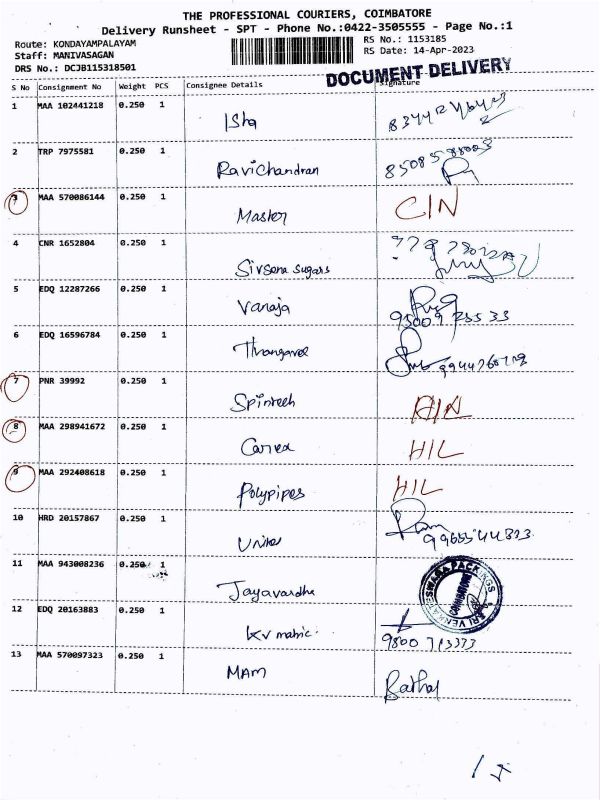 THE PROFESSIONAL COURIERS, COIMBATORE
Delivery Runsheet - SPT - Phone No.:0422-3505555 - Page No.:1
Route: KONDAYAMPALAYAM
RS No.: 1153185
Staff: MANIVASAGAN
RS Date: 14-Apr-2023
DRS No.: DCJB115318501
DOCUMENT DELIVERY
S No Consignment No Weight PCS Consignee Details Signature
1 MAA 102441218 0.250 1 Isha
2 TRP 7975581 0.250 1 Ravichandran
3 MAA 570086144 0.250 1 Master CIN
4 CNR 1652804 0.250 1 Sivsena sugars
5 EDQ 12287266 0.250 1 Vanaja
6 EDQ 16596784 0.250 1 Thangavel
7 PNR 39992 0.250 1 Spintech
8 MAA 298941672 0.250 1 HIL
9 MAA 292408618 0.250 1 Polypipes HIL
10 HRD 20157867 0.250 1
11 MAA 943008236 0.250 1 Jayavardha
SRI VENKATESWARA PACKINGS
COIMBATORE
12 EDQ 20163883 0.250 1 kv matric.
13 MAA 570097323 0.250 1 MAM